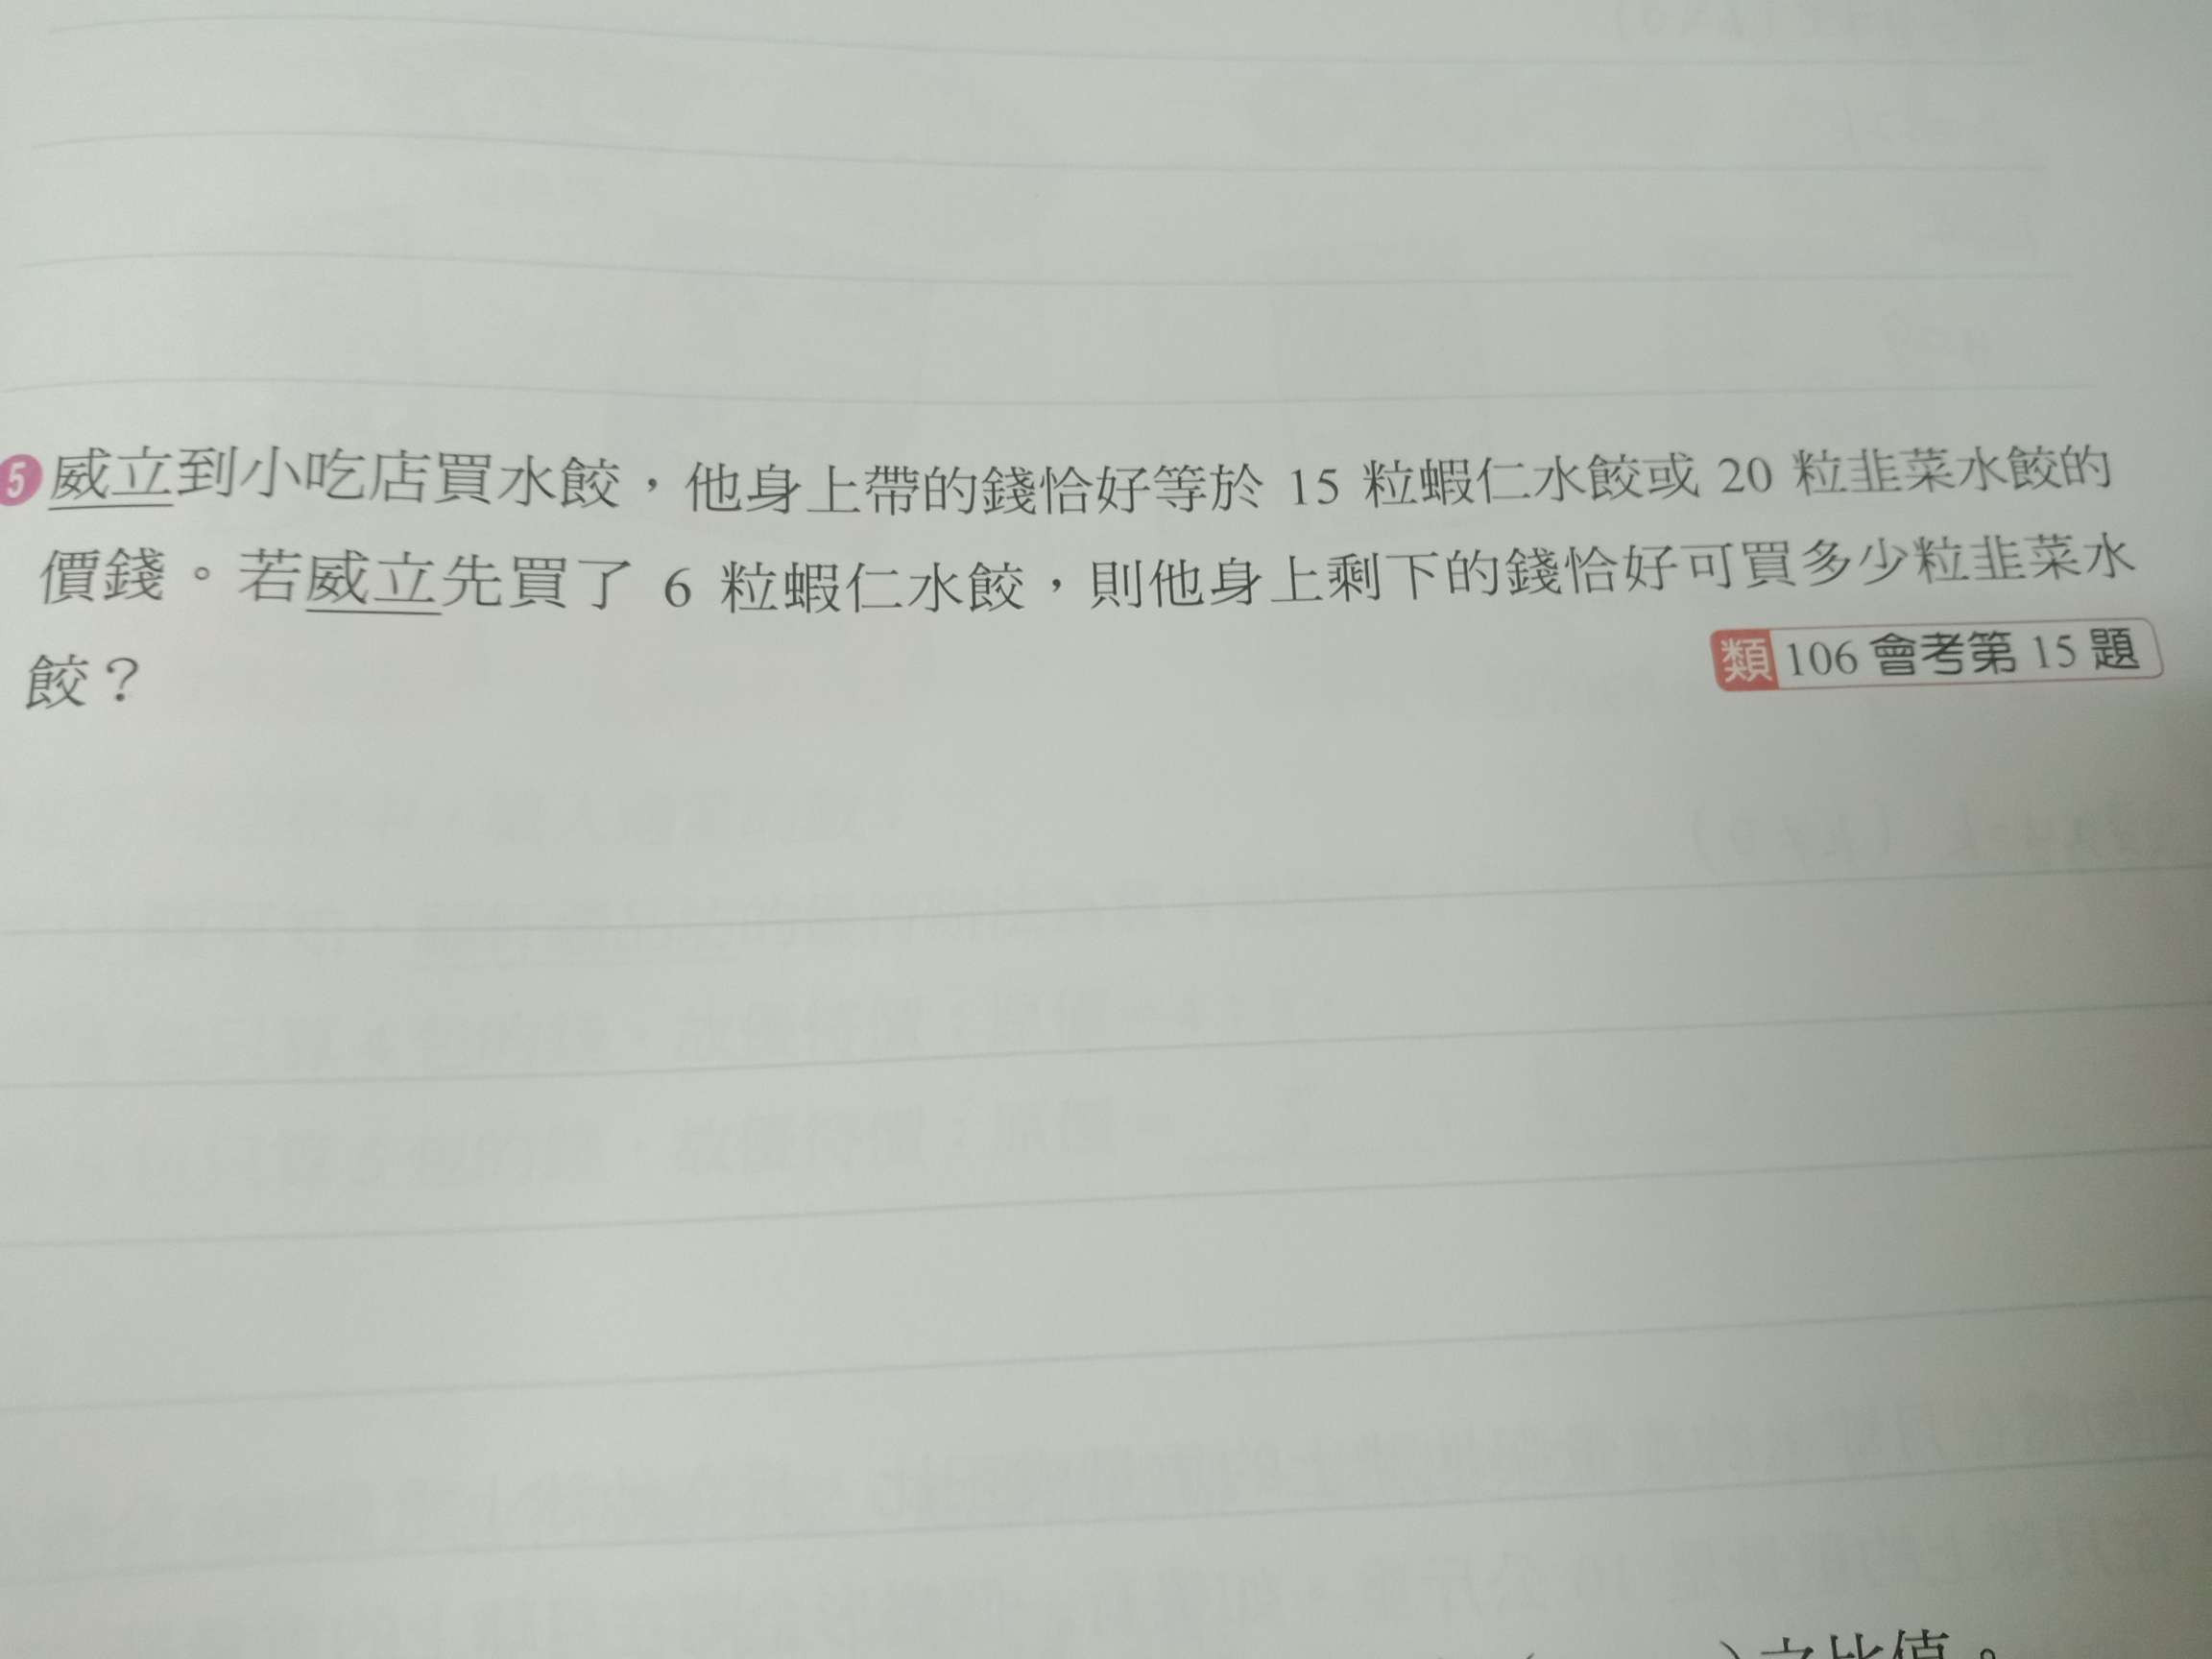 5 威立到小吃店買水餃，他身上帶的錢恰好等於 15 粒蝦仁水餃或 20 粒韭菜水餃的
價錢。若威立先買了 6 粒蝦仁水餃，則他身上剩下的錢恰好可買多少粒韭菜水
餃？
類 106 會考第 15 題
之比值。